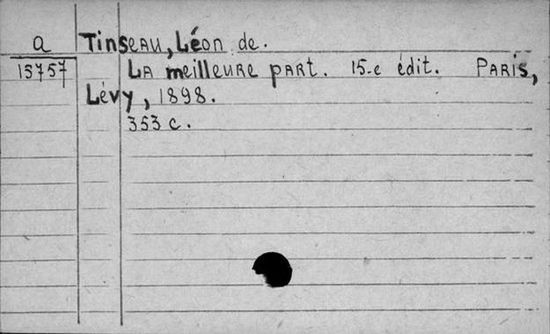 a Tinseau, Léon de.
15757 La meilleure part. 15-e édit. Paris,
Lévy, 1898.
353 c.